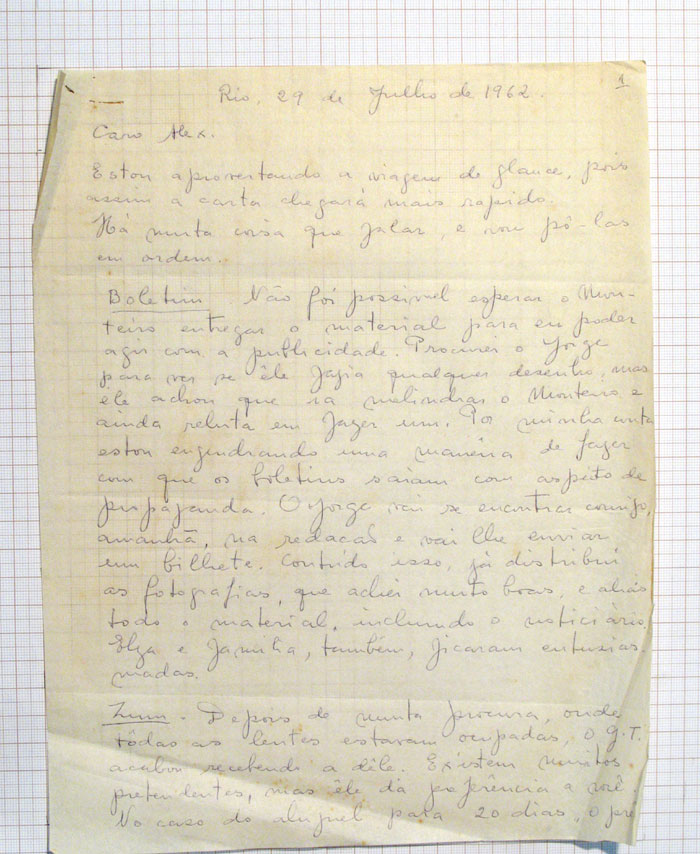 1
Rio, 29 de Julho de 1962.
Caro Alex.
Estou aproveitando a viagem de Glauce, pois
assim a carta chegará mais rapido.
Há muita coisa que falar, e vou pô-las
em ordem.
Boletim. Não foi possivel esperar o Mon-
teiro entregar o material para eu poder
agir com a publicidade. Procurei o Jorge
para ver se êle fazia qualquer desenho, mas
ele achou que ia melindrar o Monteiro e
ainda reluta em fazer um. Por minha conta
estou engendrando uma maneira de fazer
com que os boletins saiam com aspeto de
propaganda. O Jorge vai se encontrar comigo,
amanhã, na redação e vai lhe enviar
um bilhete. Contudo isso, já distribui
as fotografias, que achei muito boas, e aliás
todo o material, incluindo o noticiário
Elza e familia, também, ficaram entusias-
madas.
Zum. Depois de muita procura, onde
tôdas as lentes estavam ocupadas, o G.T.
acabou recebendo a dêle. Existem muitos
pretendentes, mas êle dá preferência a você.
No caso do aluguel para 20 dias, o pre